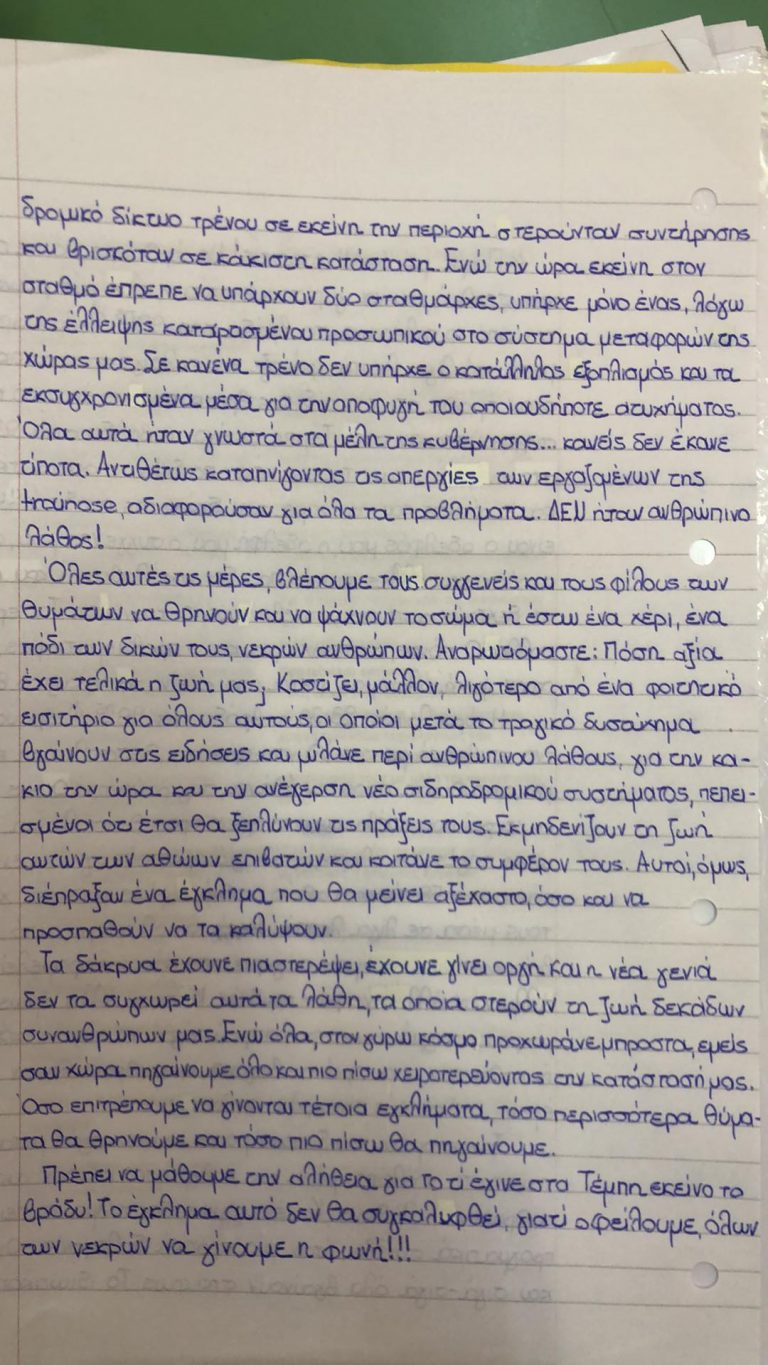 δρομικό δίκτυο τρένου σε εκείνη την περιοχή στερούνταν συντήρησης
και βρισκόταν σε κάκιστη κατάσταση. Ενώ την ώρα εκείνη στον
σταθμό έπρεπε να υπάρχουν δύο σταθμάρχες, υπήρχε μόνο ένας, λόγω
της έλλειψης καταρτισμένου προσωπικού στο σύστημα μεταφορών της
χώρας μας. Σε κανένα τρένο δεν υπήρχε ο κατάλληλος εξοπλισμός και τα
εκσυγχρονισμένα μέσα για την αποφυγή του οποιουδήποτε ατυχήματος.
Όλα αυτά ήταν γνωστά στα μέλη της κυβέρνησης... κανείς δεν έκανε
τίποτα. Αντιθέτως καταπνίγοντας τις απεργίες των εργαζομένων της
trainose, αδιαφορούσαν για όλα τα προβλήματα. ΔΕΝ ήταν ανθρώπινο
λάθος!
Όλες αυτές τις μέρες, βλέπουμε τους συγγενείς και τους φίλους των
θυμάτων να θρηνούν και να ψάχνουν το σώμα ή έστω ένα χέρι, ένα
πόδι των δικών τους, νεκρών ανθρώπων. Αναρωτιόμαστε: Πόση αξία
έχει τελικά η ζωή μας; Κοστίζει, μάλλον, λιγότερο από ένα φοιτητικό
εισιτήριο για όλους αυτούς, οι οποίοι μετά το τραγικό δυστύχημα
βγαίνουν στις ειδήσεις και μιλάνε περί ανθρώπινου λάθους, για την κα-
κια την ώρα και την ανέγερση νέο σιδηροδρομικού συστήματος, πεπει-
σμένοι ότι έτσι θα ξεπλύνουν τις πράξεις τους. Εκμηδενίζουν τη ζωή
αυτών των αθώων επιβατών και κοιτάνε το συμφέρον τους. Αυτοί, όμως,
διέπραξαν ένα έγκλημα που θα μείνει αξέχαστο, όσο και να
προσπαθούν να τα καλύψουν.
Τα δάκρυα έχουνε πια στερέψει, έχουνε γίνει οργή και η νέα γενιά
δεν τα συγχωρεί αυτά τα λάθη, τα οποία στερούν τη ζωή δεκάδων
συνανθρώπων μας. Ενώ όλα, στον γύρω κόσμο προχωράνε μπροστα, εμείς
σαν χώρα πηγαίνουμε όλο και πιο πίσω χειροτερεύοντας την κατάστασή μας.
Όσο επιτρέπουμε να γίνονται τέτοια εγκλήματα, τόσο περισσότερα θύμα-
τα θα θρηνούμε και τόσο πιο πίσω θα πηγαίνουμε.
Πρέπει να μάθουμε την αλήθεια για το τι έγινε στα Τέμπη εκείνο το
βράδυ! Το έγκλημα αυτό δεν θα συγκαλυφθεί, γιατί οφείλουμε, όλων
των νεκρών να γίνουμε η φωνή!!!